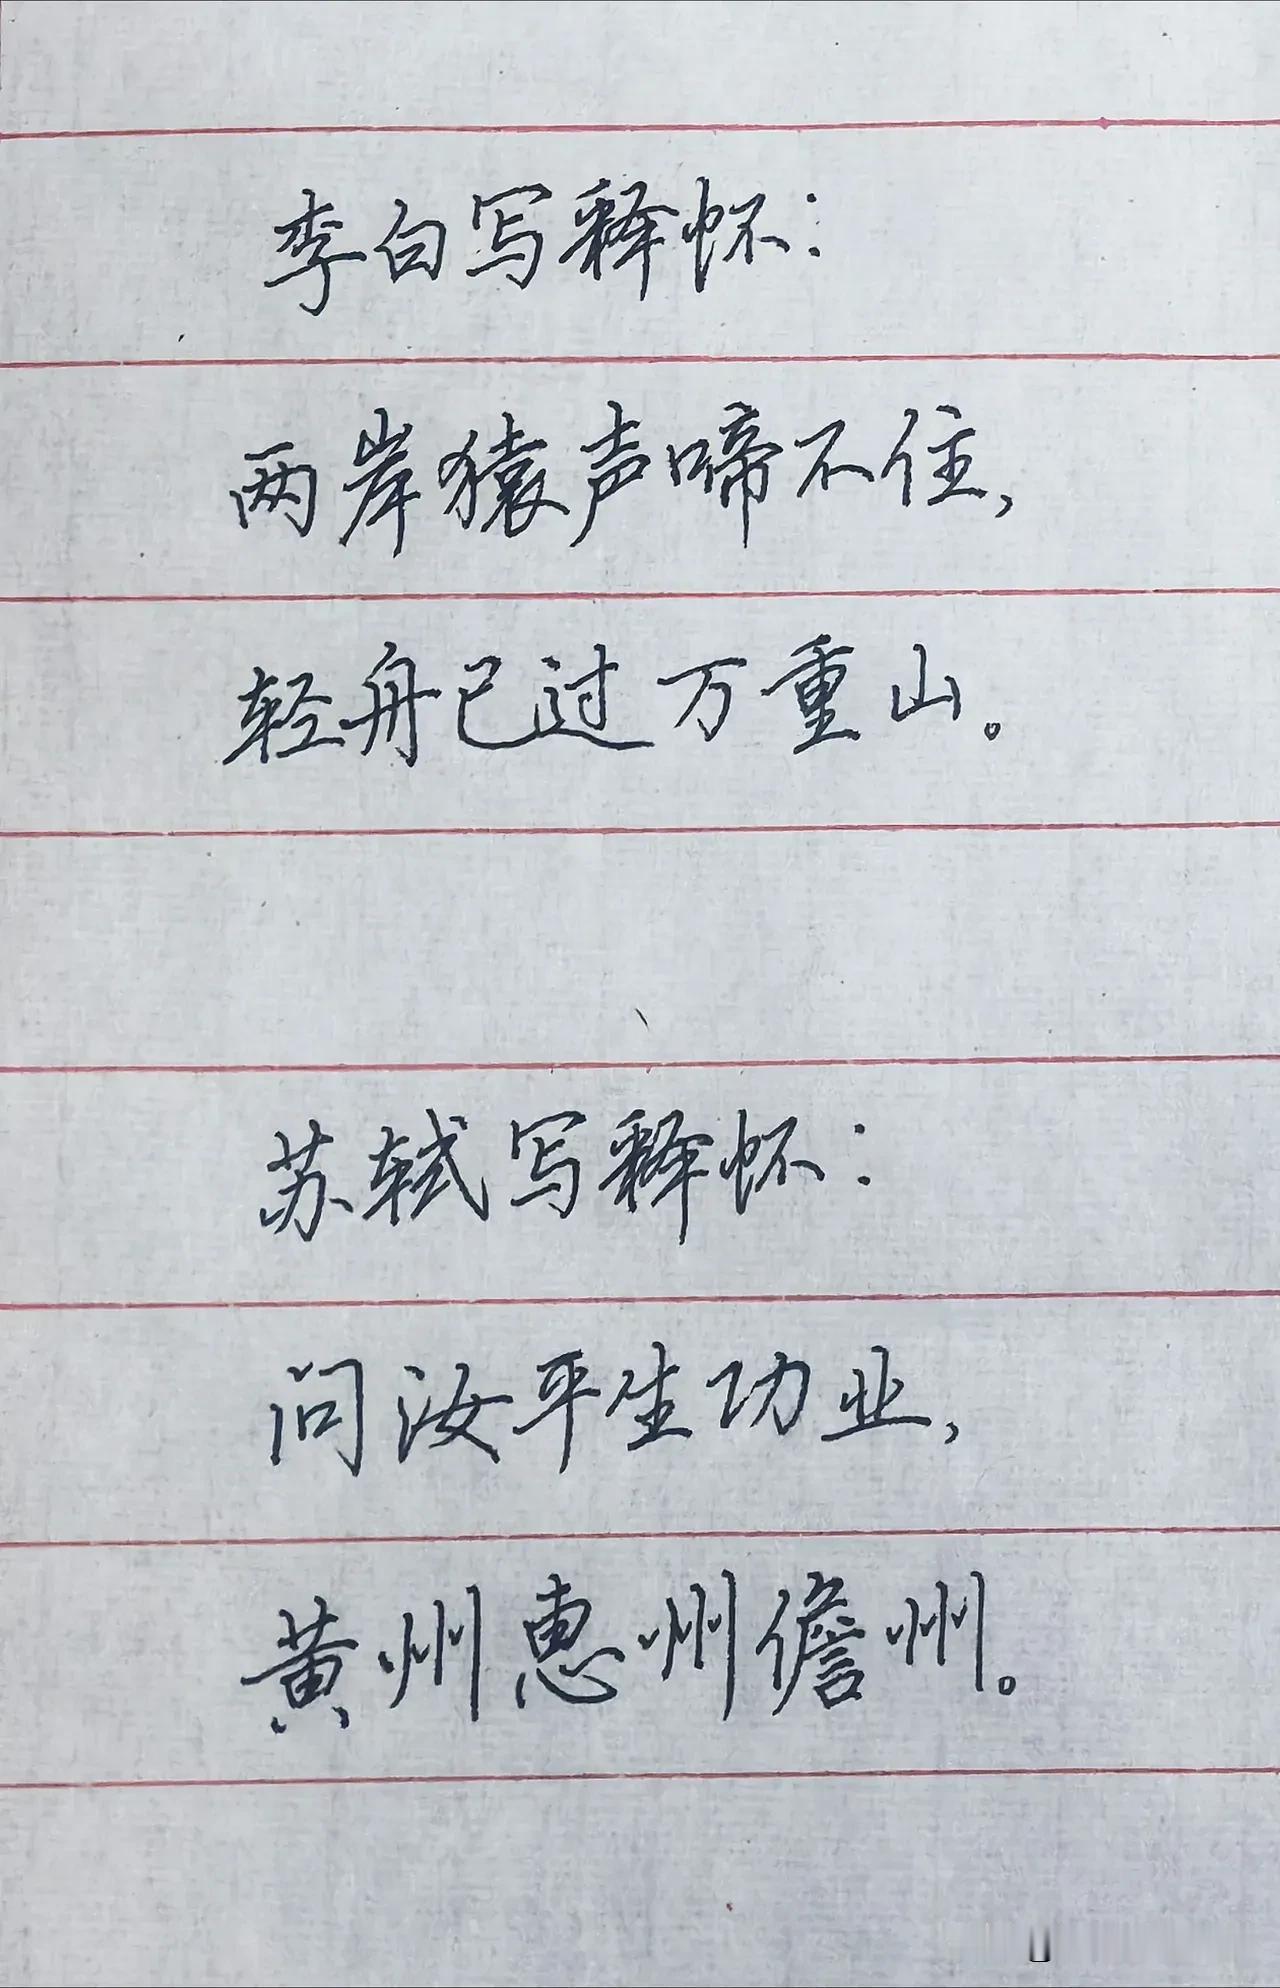 李白写释怀：
两岸猿声啼不住，
轻舟已过万重山。
苏轼写释怀：
问汝平生功业，
黄州惠州儋州。